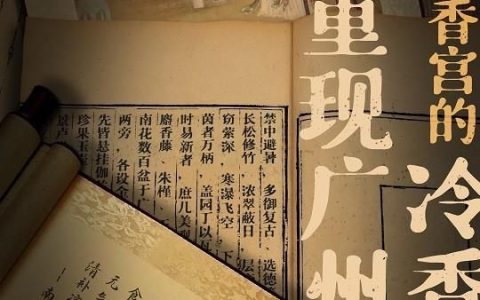 香宫的
冷香
重现广州
禁中避暑 多御复古、选德
长松修竹 浓翠蔽日 层
窈萦深 寒瀑飞空 下
茵者万柄，盖园丁以瓦
时易新者，庶几美
麝香藤、朱槿、
南花数百盆于广
两旁，各设金
先皆悬挂伽
珍果玉壶
景卢
食
元
清补
—南